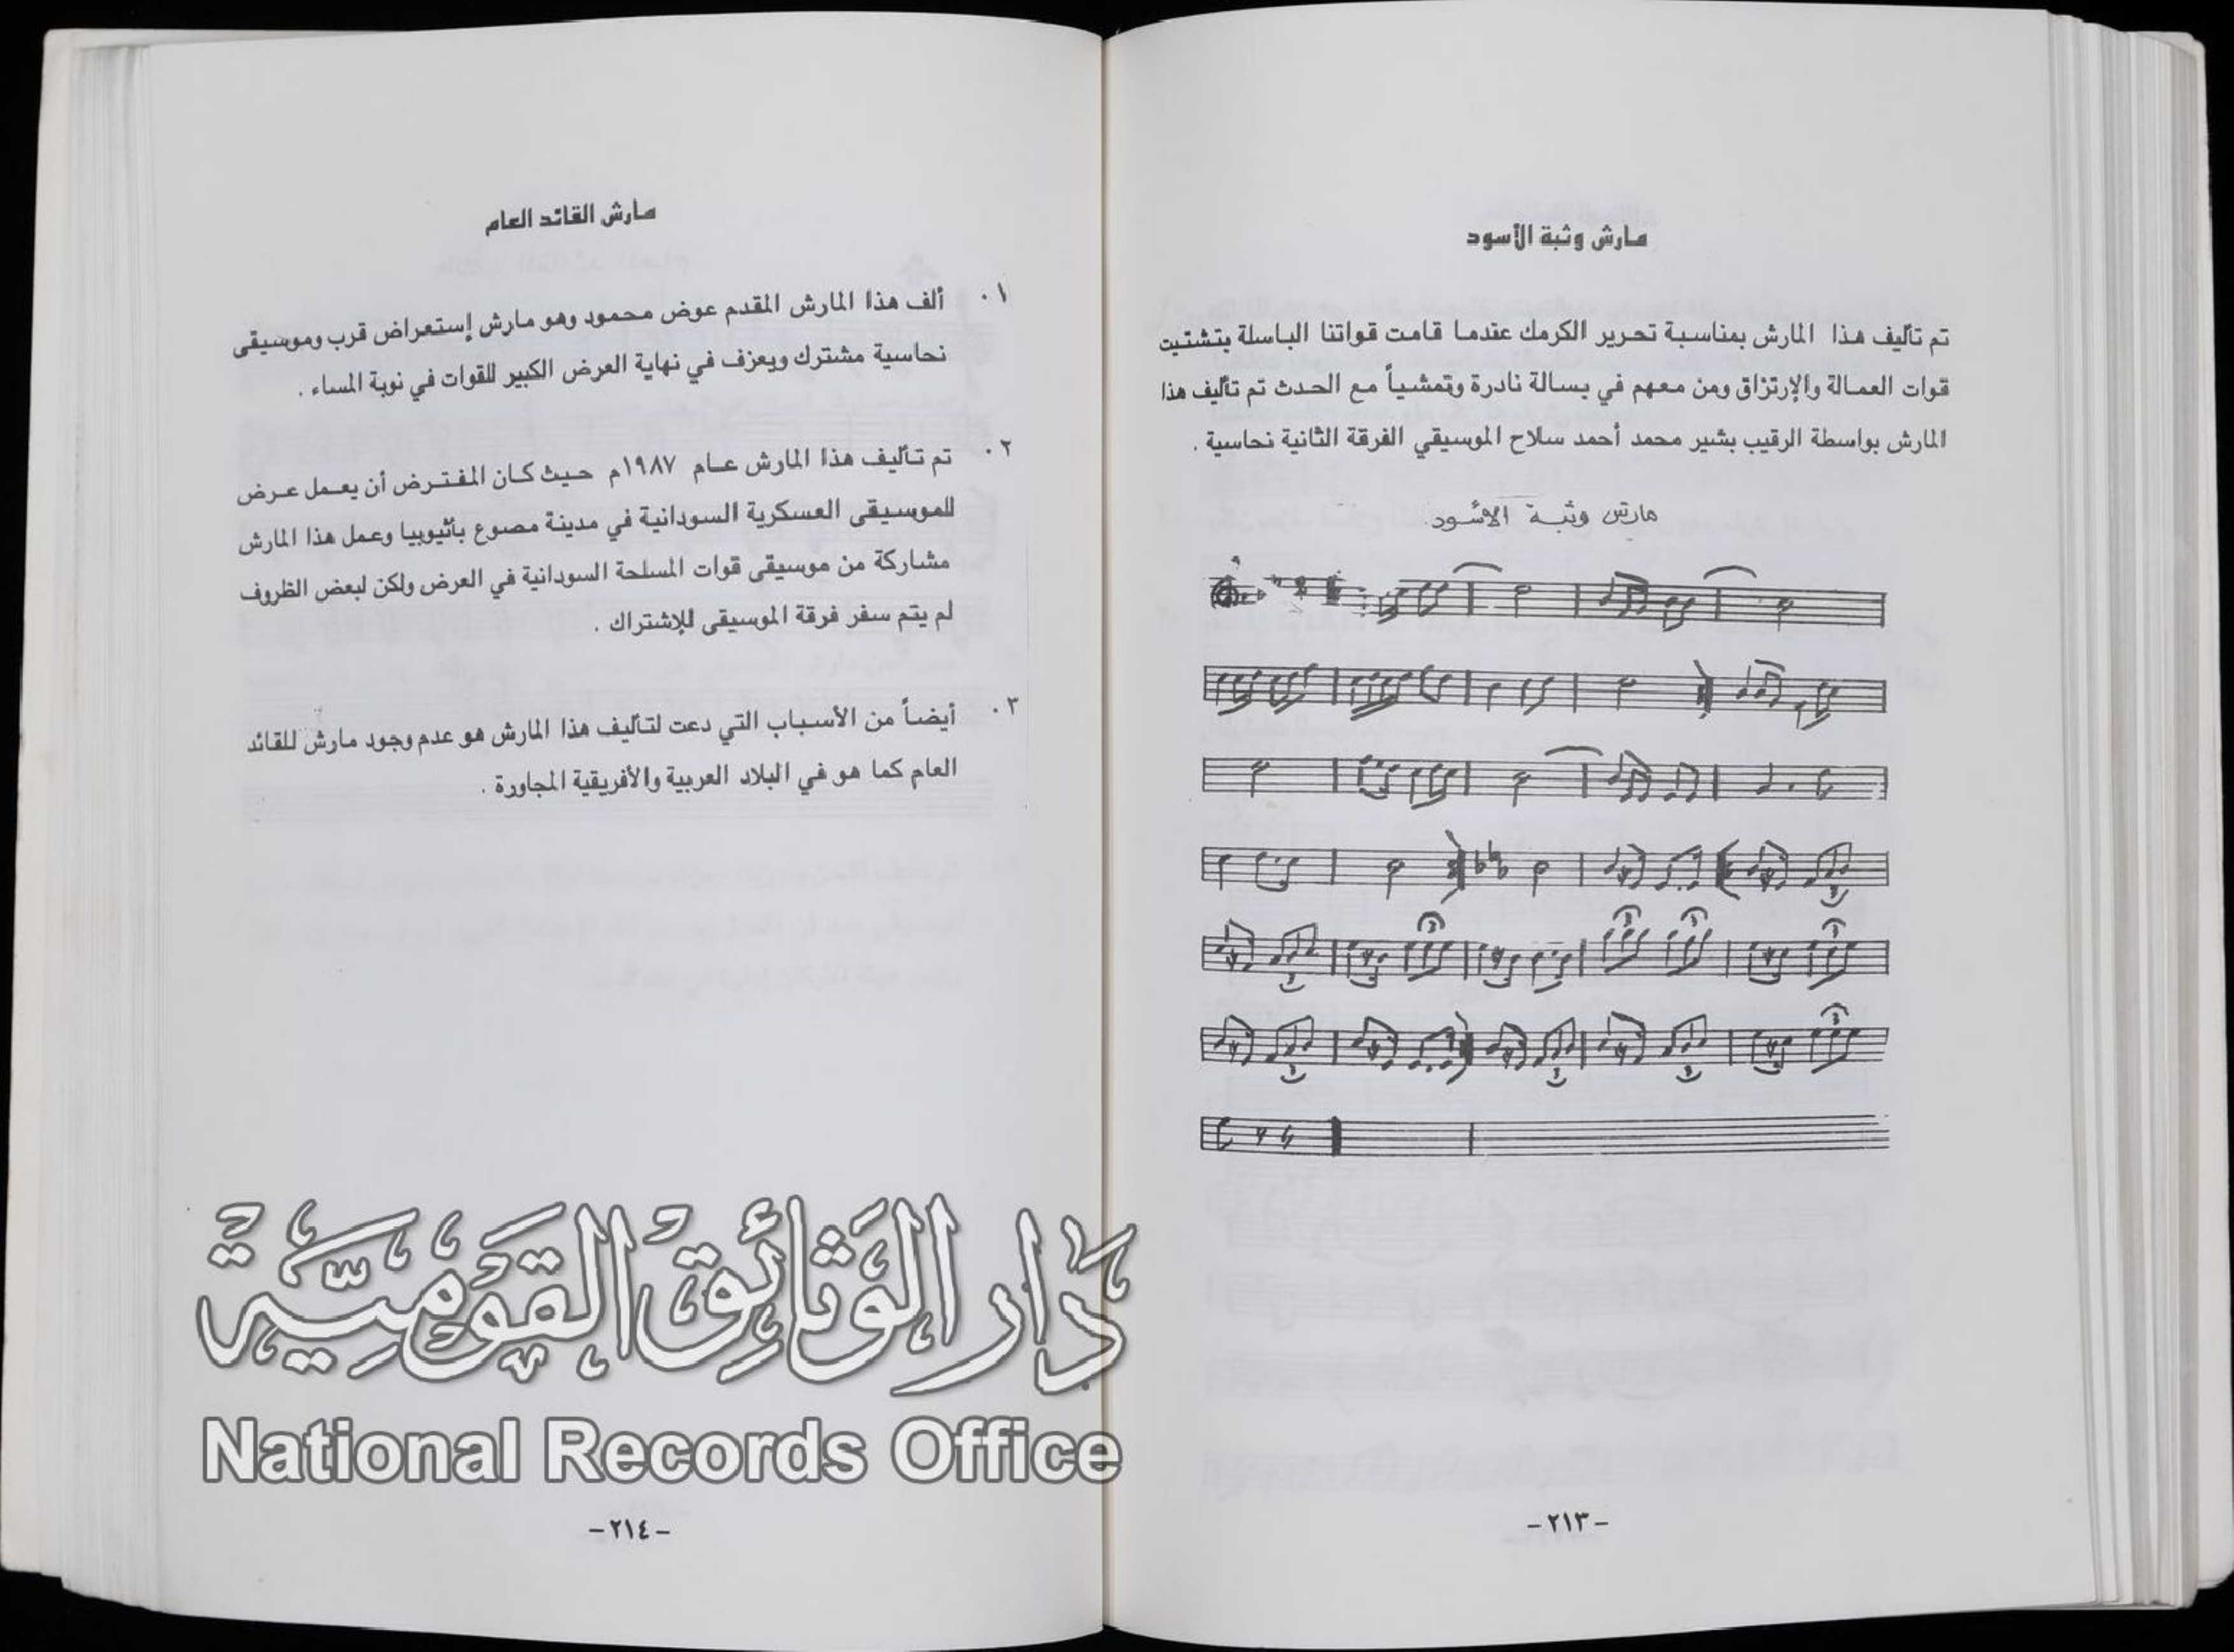 مارش وثبة الأسود
تم تأليف هذا المارش بمناسبة تحرير الكرمك عندما قامت قواتنا الباسلة بتشتيت
قوات العمالة والإرتزاق ومن معهم في بسالة نادرة وتمشياً مع الحدث تم تأليف هذا
المارش بواسطة الرقيب بشير محمد أحمد سلاح الموسيقي الفرقة الثانية نحاسية .
مارش وثبة الاسود
-٢١٣-
مارش القائد العام
١٠ ألف هذا المارش المقدم عوض محمود وهو مارش إستعراض قرب وموسيقى
نحاسية مشترك ويعزف في نهاية العرض الكبير للقوات في نوبة المساء .
٢٠ تم تأليف هذا المارش عام ١٩٨٧م حيث كان المفترض أن يعمل عرض
للموسيقى العسكرية السودانية في مدينة مصوع بأثيوبيا وعمل هذا المارش
مشاركة من موسيقى قوات المسلحة السودانية في العرض ولكن لبعض الظروف
لم يتم سفر فرقة الموسيقى للإشتراك .
٣٠ أيضاً من الأسباب التي دعت لتأليف هذا المارش هو عدم وجود مارش للقائد
العام كما هو في البلاد العربية والأفريقية المجاورة .
دار الوثائق القومية
National Records Office
-٢١٤-